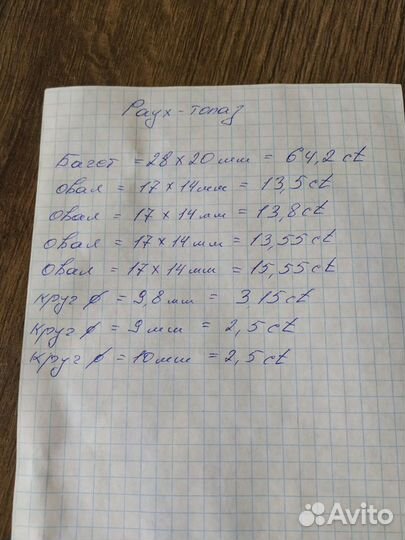 Раух-топаз
Багет = 28 x 20 мм = 64,2 ct
Овал = 17 x 14 мм = 13,5 ct
Овал = 17 x 14 мм = 13,8 ct
Овал = 17 x 14 мм = 13,55 ct
Овал = 17 x 14 мм = 15,55 ct
Круг ⌀ = 9,8 мм = 3,15 ct
Круг ⌀ = 9 мм = 2,5 ct
Круг ⌀ = 10 мм = 2,5 ct
Avito